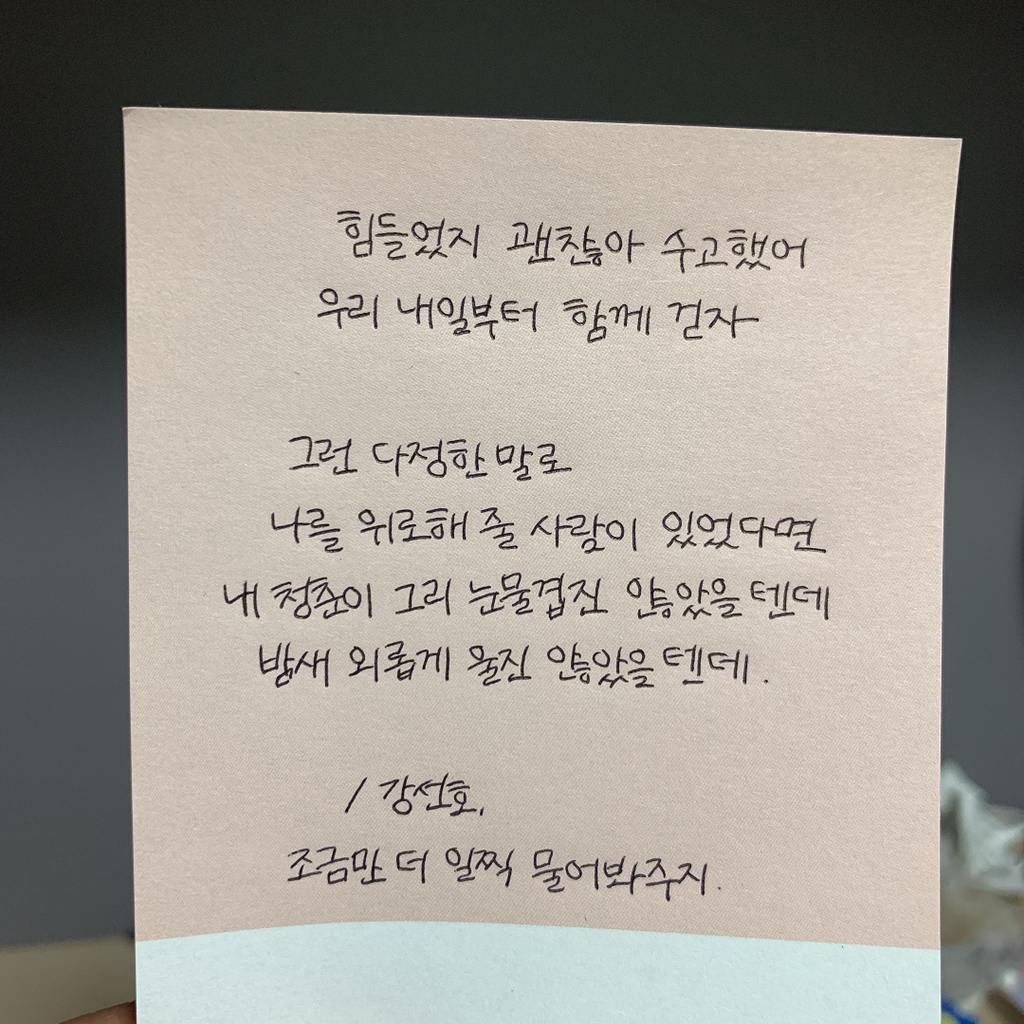 힘들었지 괜찮아 수고했어
우리 내일부터 함께 걷자
그런 다정한 말로
나를 위로해 줄 사람이 있었다면
내 청춘이 그리 눈물겹진 않았을 텐데
밤새 외롭게 울진 않았을 텐데.
/ 강선호,
조금만 더 일찍 물어봐주지.